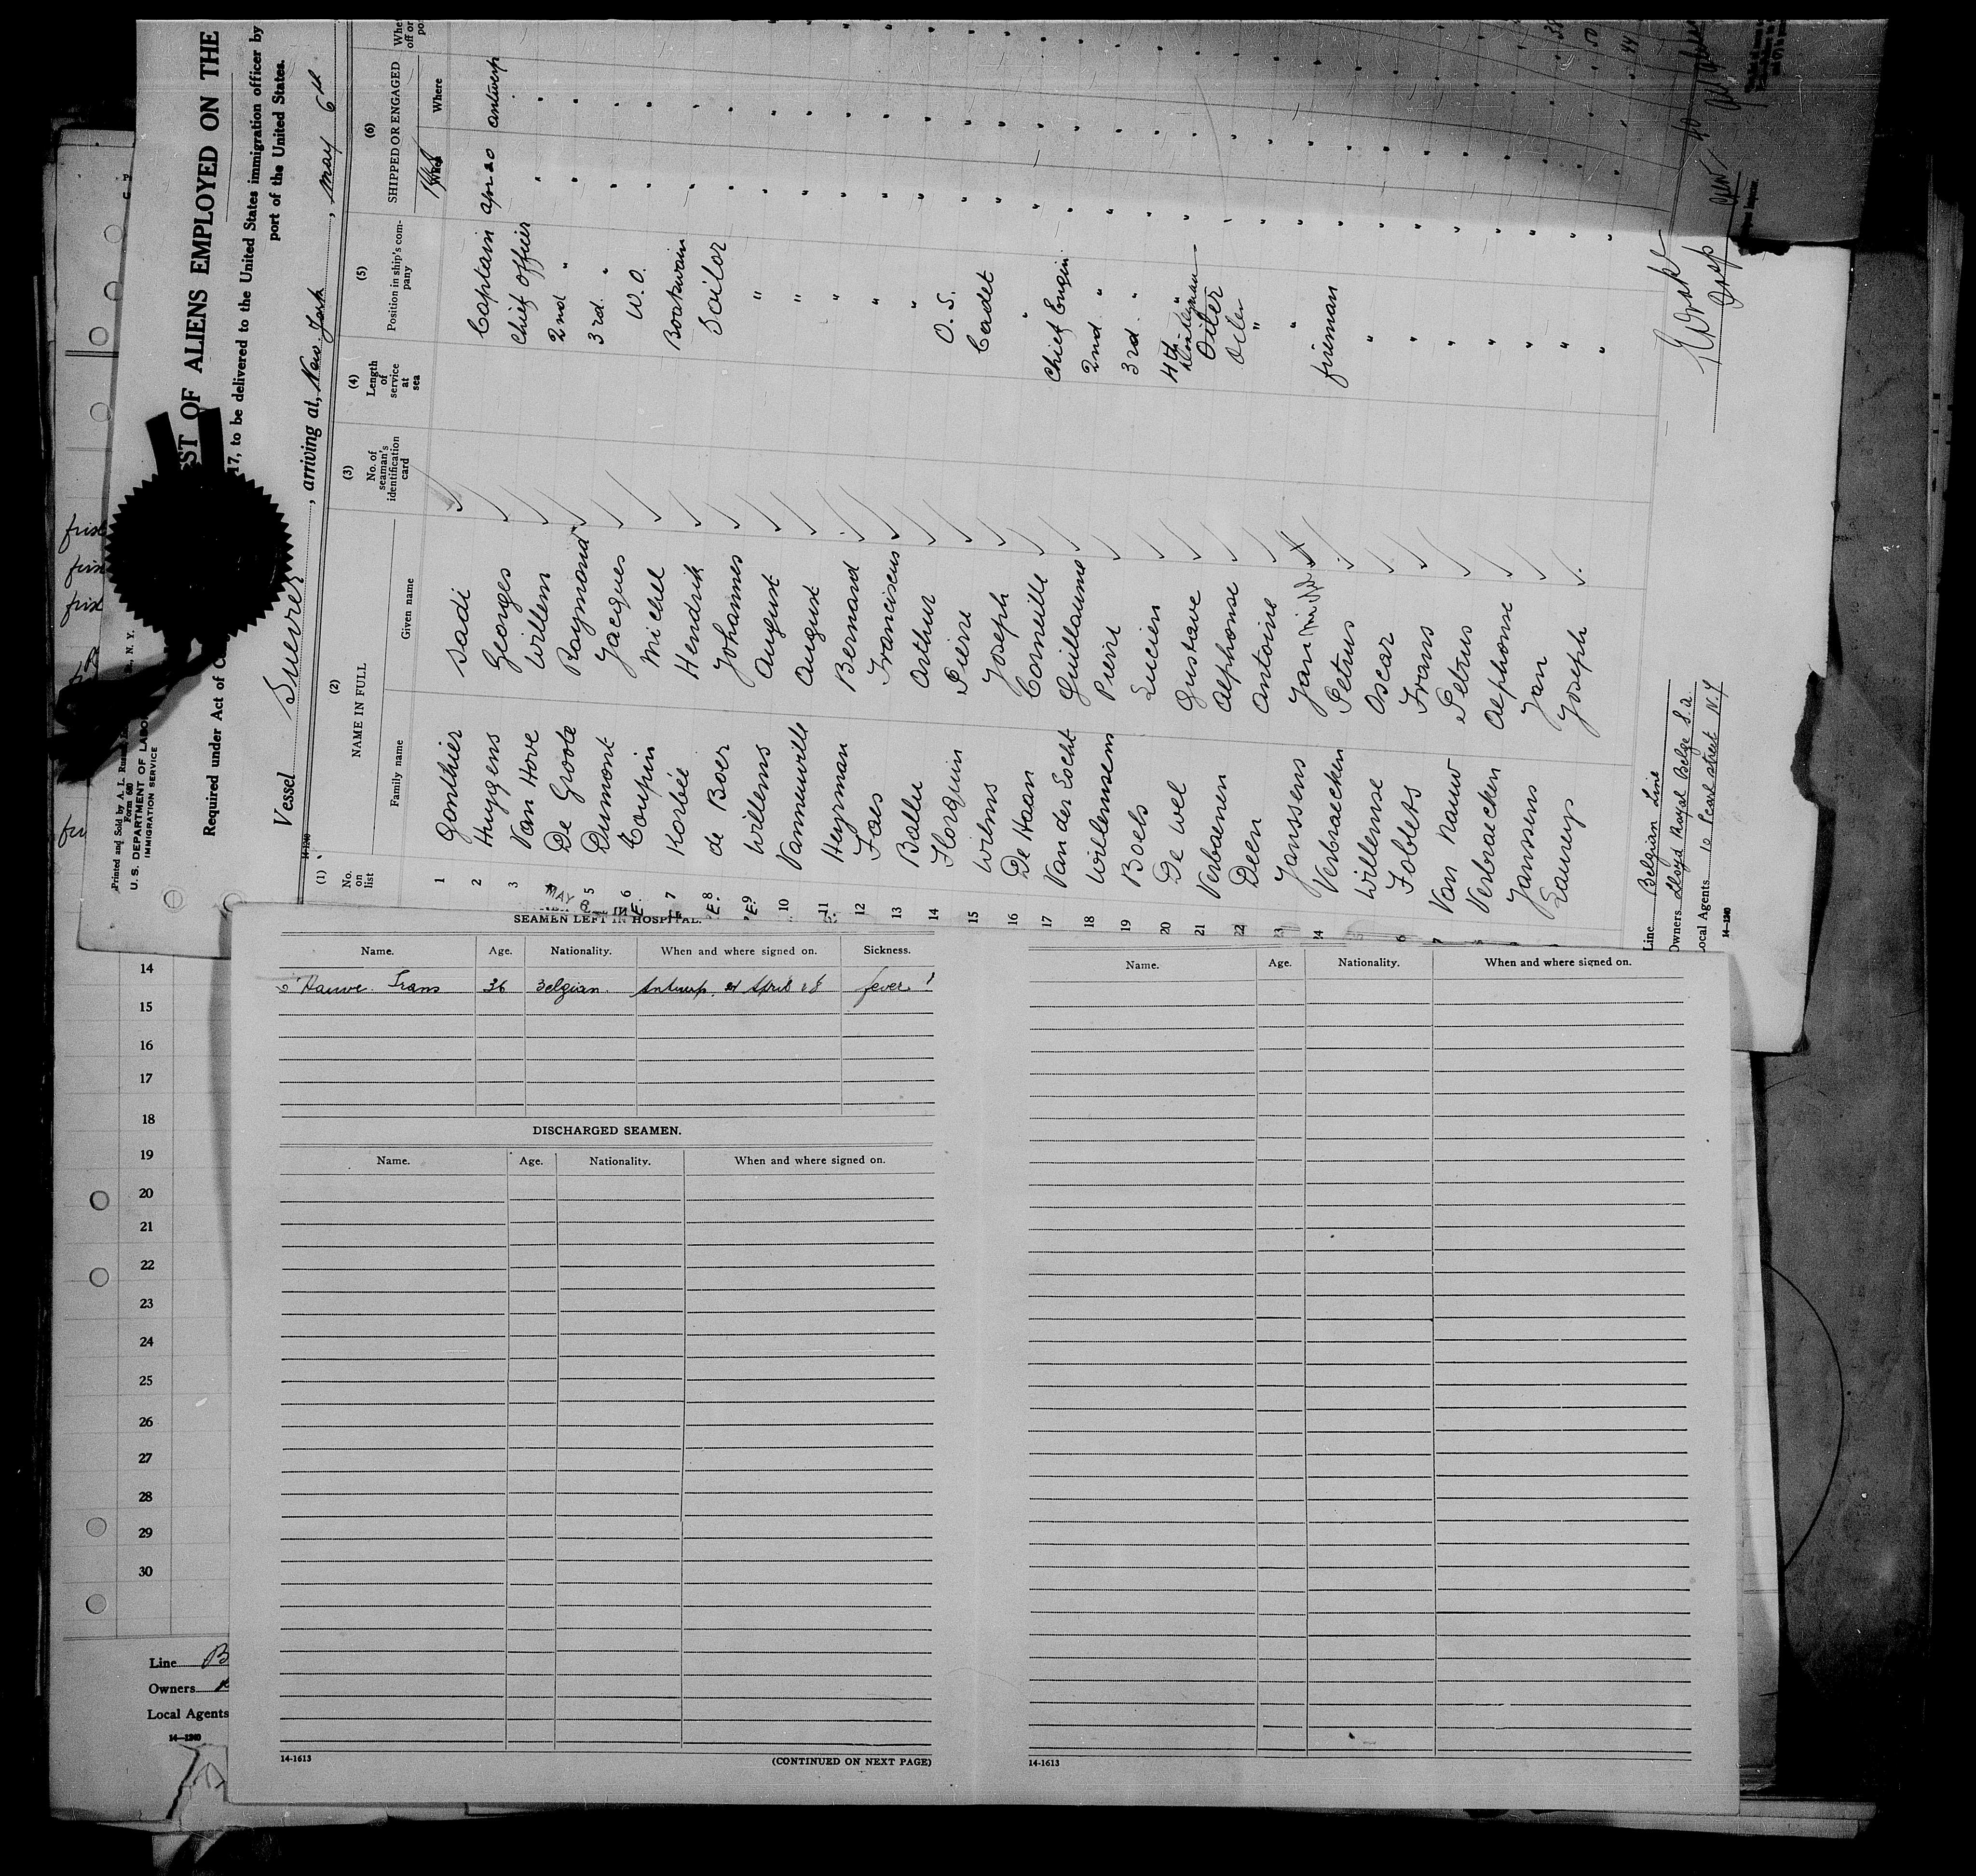 Printed and Sold by A. L.
Form 680
U. S. DEPARTMENT OF LABOR
IMMIGRATION SERVICE
N. Y.
OF ALIENS EMPLOYED ON THE
Required under Act of
17, to be delivered to the United States immigration officer by
port of the United States.
Vessel
, arriving at, New York, May 6th
14-1240
(1) No. on list
(2) NAME IN FULL
Family name
Given name
(3) No. of seaman's identification card
(4) Length of service at sea
(5) Position in ship's company
(6) SHIPPED OR ENGAGED
When
Where
1 Gonthier Sadi Captain apr 20 antwerp
2 Huygens Georges Chief officer " "
3 Van Hove Willem 2nd " " "
De Groote Raymond 3rd " " "
5 Dumont Jacques W.O. " "
6 Toupin Michel Boatswain " "
7 Korbée Hendrik Sailor " "
8 de Boer Johannes " " "
9 Willems August " " "
10 Vanneuville August " " "
11 Heyrman Bernard " " "
12 Faes Franciscus " " "
13 Bollu Arthur O.S. " "
14 Florquin Pierre Cadet " "
15 Wilms Joseph " " "
16 De Haan Corneille Chief Engin. " "
17 Van der Locht Guillaume 2nd " " "
18 Willemsem Pierre 3rd " " "
19 Boels Lucien 4th " " "
20 De Wel Gustave Donkeyman Oiler " "
21 Verbaenen Alphonse Oiler " "
22 Deen Antoine " " "
23 Janssens Jan " " "
24 Verbraecken Petrus fireman " "
Willemse Oscar " " "
Joblets Frans " " "
Van Nauw Petrus " " "
Verbraecken Alphonse " " "
Janssens Jan " " "
Lauwys Joseph " " "
Line Belgian Line
Owners Lloyd Royal Belge S.a.
Local Agents 10 Pearl street N.Y
14-1240
SEAMEN LEFT IN HOSPITAL.
Name. Age. Nationality. When and where signed on. Sickness.
Hauwe Frans 36 Belgian. Antwerp, 21 April 28 fever
DISCHARGED SEAMEN.
Name. Age. Nationality. When and where signed on.
14-1613
(CONTINUED ON NEXT PAGE)
Name. Age. Nationality. When and where signed on.
14-1613
14
15
16
17
18
19
20
21
22
23
24
25
26
27
28
29
30
Line B
Owners
Local Agents
14-1240